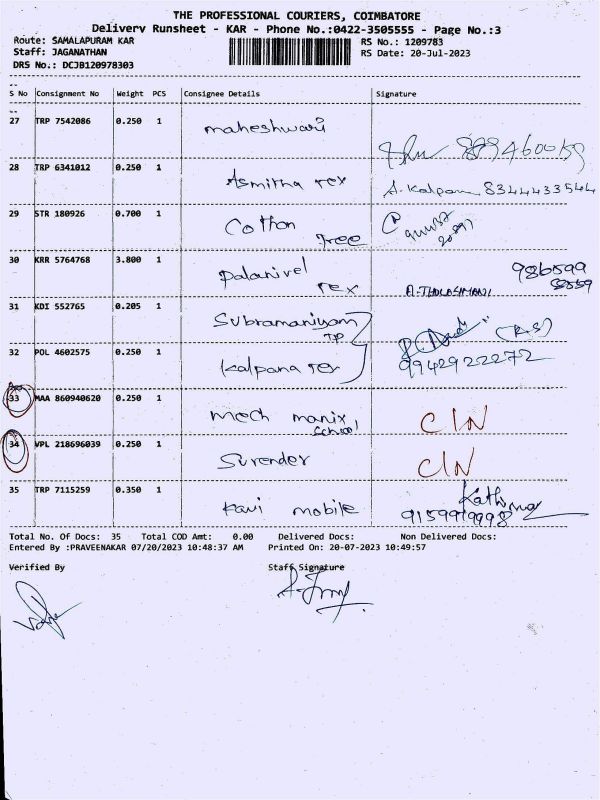 THE PROFESSIONAL COURIERS, COIMBATORE
Delivery Runsheet - KAR - Phone No.:0422-3505555 - Page No.:3
Route: SAMALAPURAM KAR RS No.: 1209783
Staff: JAGANATHAN RS Date: 20-Jul-2023
DRS No.: DCJB120978303
S No Consignment No Weight PCS Consignee Details Signature
27 TRP 7542086 0.250 1 maheshwari
28 TRP 6341012 0.250 1 Asmitha Tex A. Kalpana 8344433544
29 STR 180926 0.700 1 Cotton Tree
30 KRR 5764768 3.800 1 Palanivel Tex A. THULASIMANI 986599
31 KDI 552765 0.205 1 Subramaniyam TP (R.S)
32 POL 4602575 0.250 1 Kalpana Tex 9942922272
33 MAA 860940620 0.250 1 Mech manix School C/N
34 VPL 218696039 0.250 1 Surender C/N
35 TRP 7115259 0.350 1 Kavi mobile
Total No. Of Docs: 35 Total COD Amt: 0.00 Delivered Docs: Non Delivered Docs:
Entered By :PRAVEENAKAR 07/20/2023 10:48:37 AM Printed On: 20-07-2023 10:49:57
Verified By Staff Signature